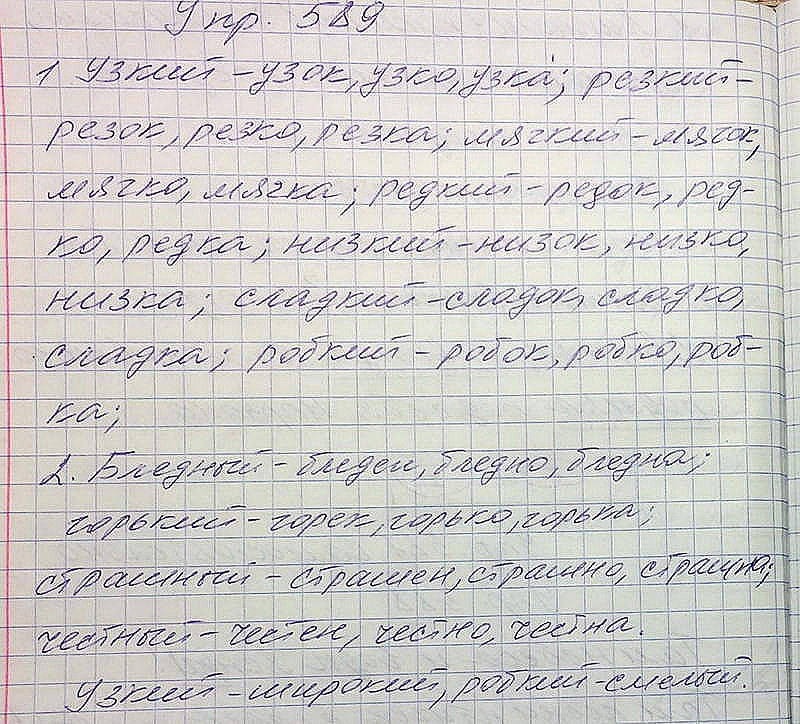 Упр. 589
1 Узкий - узок, узко, узка́; резкий -
резок, резко, резка; мягкий - мягок,
мягко, мягка; редкий - редок, ред-
ко, редка; низкий - низок, низко,
низка; сладкий - сладок, сладко,
сладка; робкий - робок, робко, роб-
ка;
2. Бледный - бледен, бледно, бледна;
горький - горек, горько, горька;
страшный - страшен, страшно, страшна;
честный - честен, честно, честна.
Узкий - широкий, робкий - смелый.